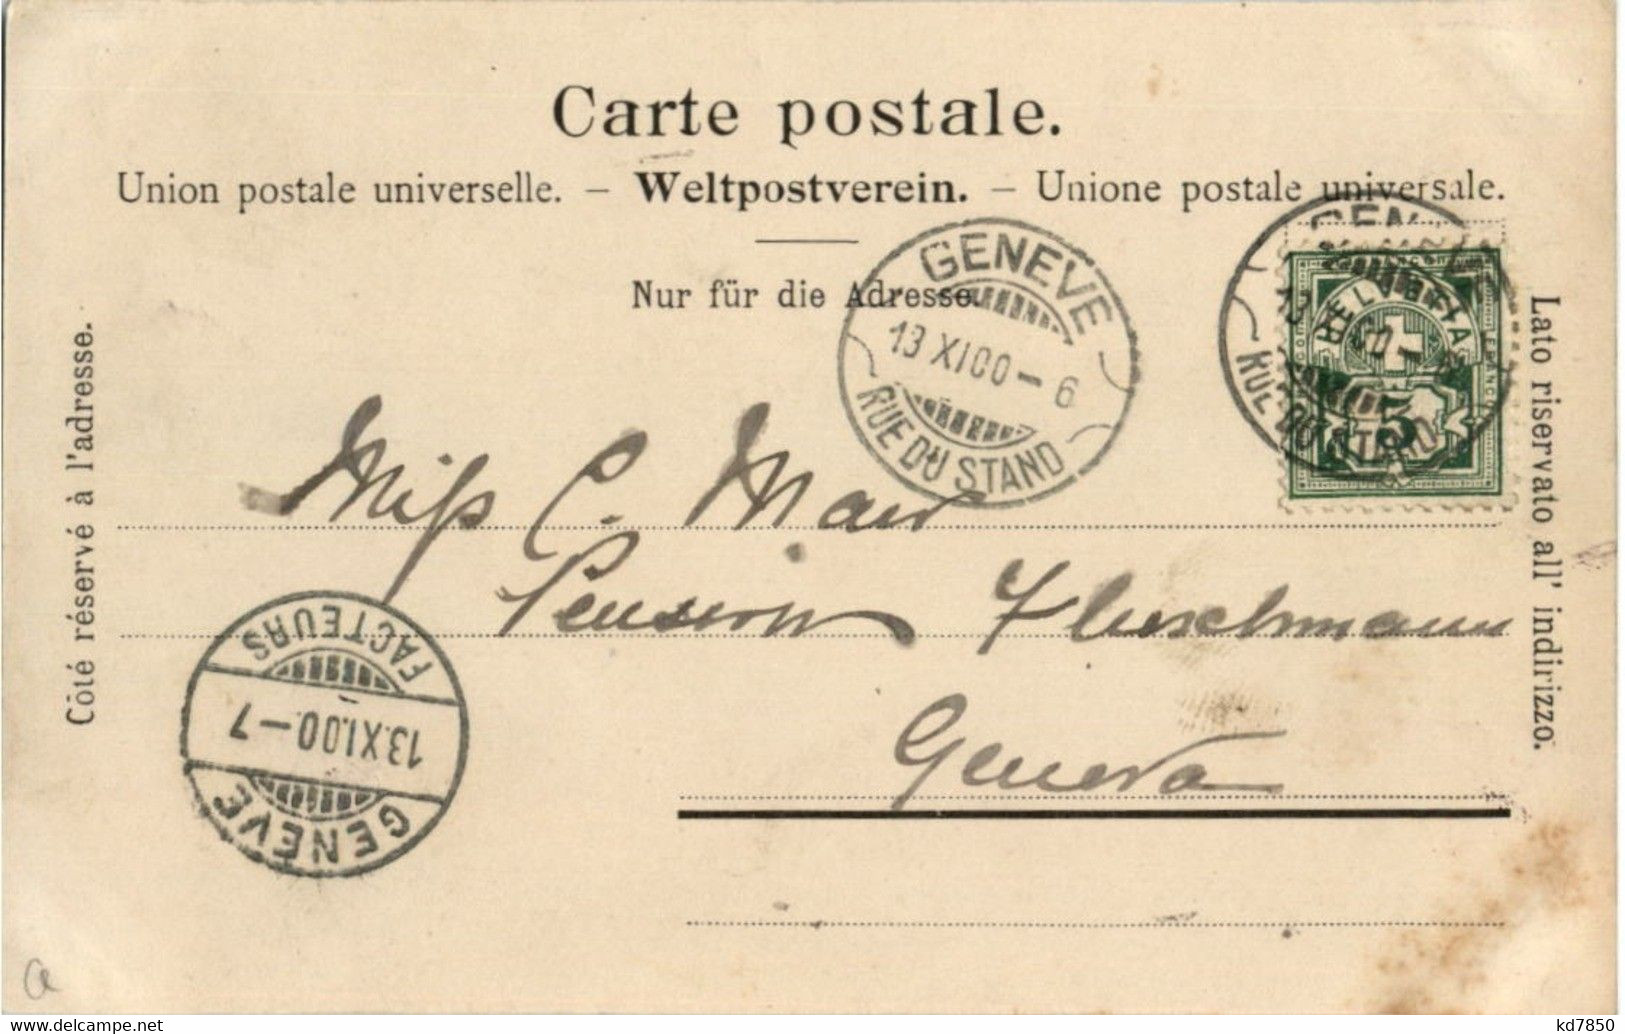 Carte postale.
Union postale universelle. — Weltpostverein. — Unione postale universale.
Nur für die Adresse.
Côté réservé à l'adresse.
Lato riservato all' indirizzo.
GENEVE
13 XI 00 – 6
RUE DU STAND
HELVETIA
FRANCO
5
RUE DU STAND
Miss C.
Pension
Geneva
FACTEURS
13.XI.00.–7
GENÈVE
a
www.delcampe.net
kd7850